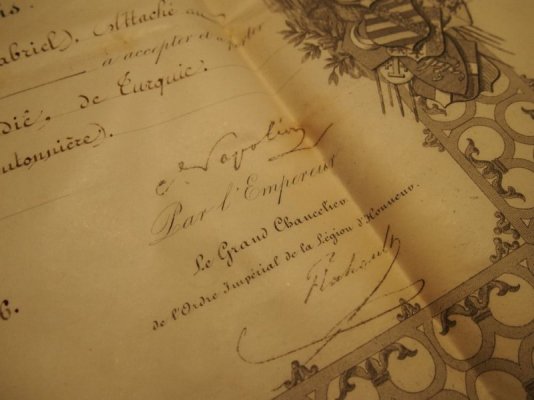 is.
abriel). Attaché au
à accepter et à porter
dié. de Turquie.
utonnière).
Napoléon
Par l'Empereur
Le Grand Chancelier
de l'Ordre Impérial de la Légion d'Honneur.
Flahault